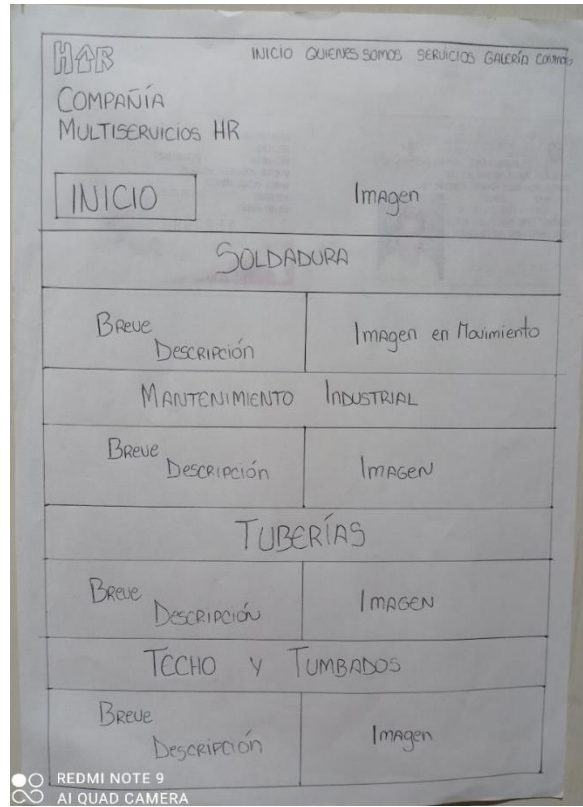 HR
INICIO QUIENES SOMOS SERVICIOS GALERÍA
COMPAÑÍA
MULTISERVICIOS HR
INICIO
Imagen
SOLDADURA
BREVE
DESCRIPCIÓN
Imagen en Movimiento
MANTENIMIENTO INDUSTRIAL
BREVE
DESCRIPCIÓN
IMAGEN
TUBERÍAS
BREVE
DESCRIPCIÓN
IMAGEN
TECHO Y TUMBADOS
BREVE
DESCRIPCIÓN
Imagen
REDMI NOTE 9
AI QUAD CAMERA